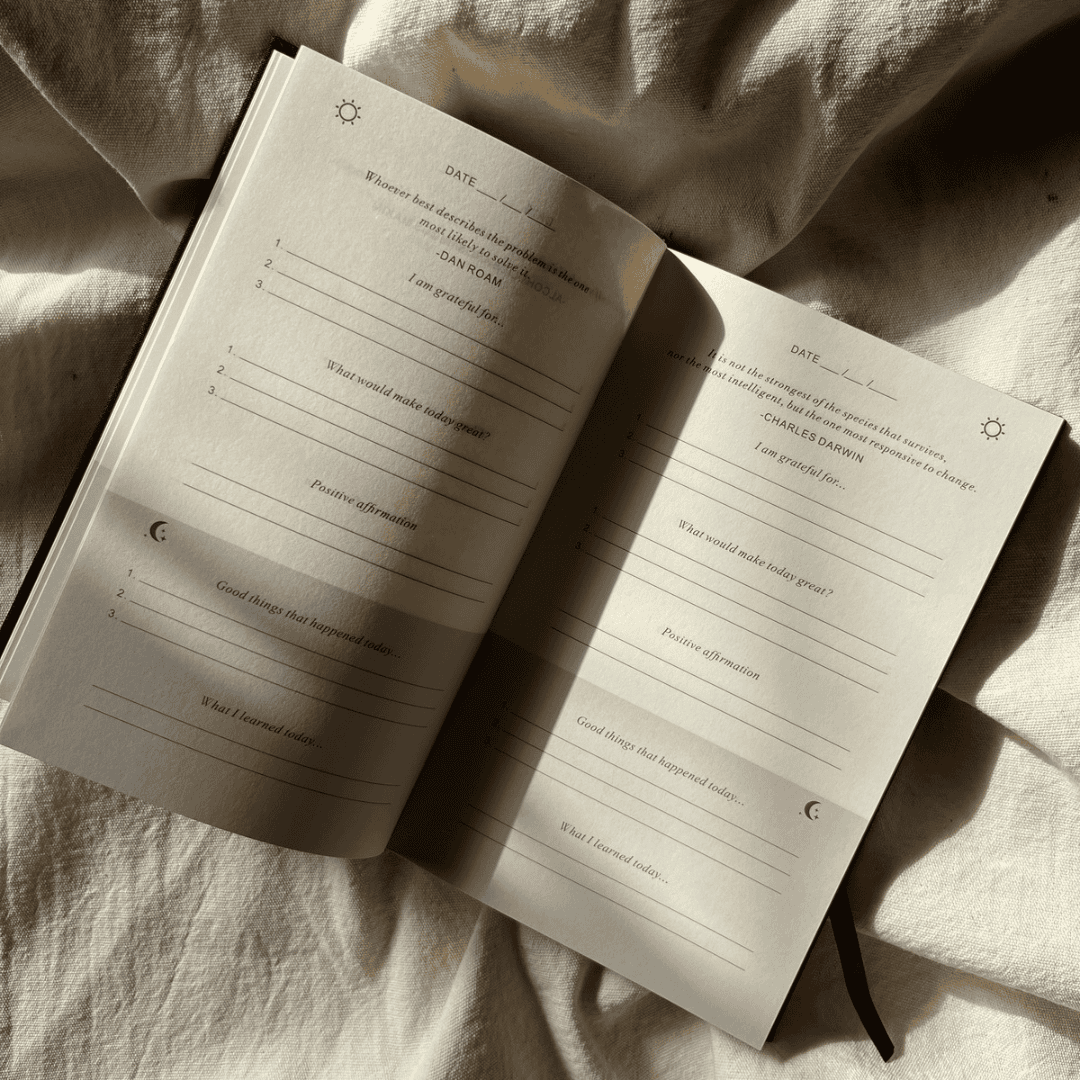 DATE__/__/__
Whoever best describes the problem is the one
most likely to solve it.
-DAN ROAM
I am grateful for...
1.
2.
3.
What would make today great?
1.
2.
3.
Positive affirmation
Good things that happened today...
1.
2.
3.
What I learned today...
DATE__/__/__
It is not the strongest of the species that survives,
nor the most intelligent, but the one most responsive to change.
-CHARLES DARWIN
I am grateful for...
1.
2.
3.
What would make today great?
1.
2.
3.
Positive affirmation
Good things that happened today...
What I learned today...